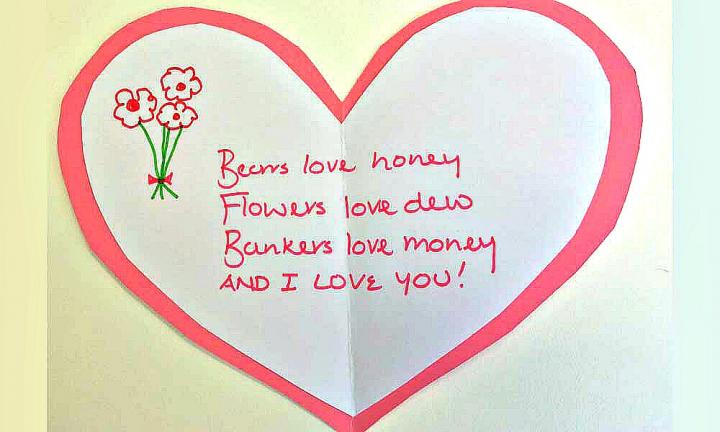 Bears love honey
Flowers love dew
Bankers love money
AND I LOVE YOU!